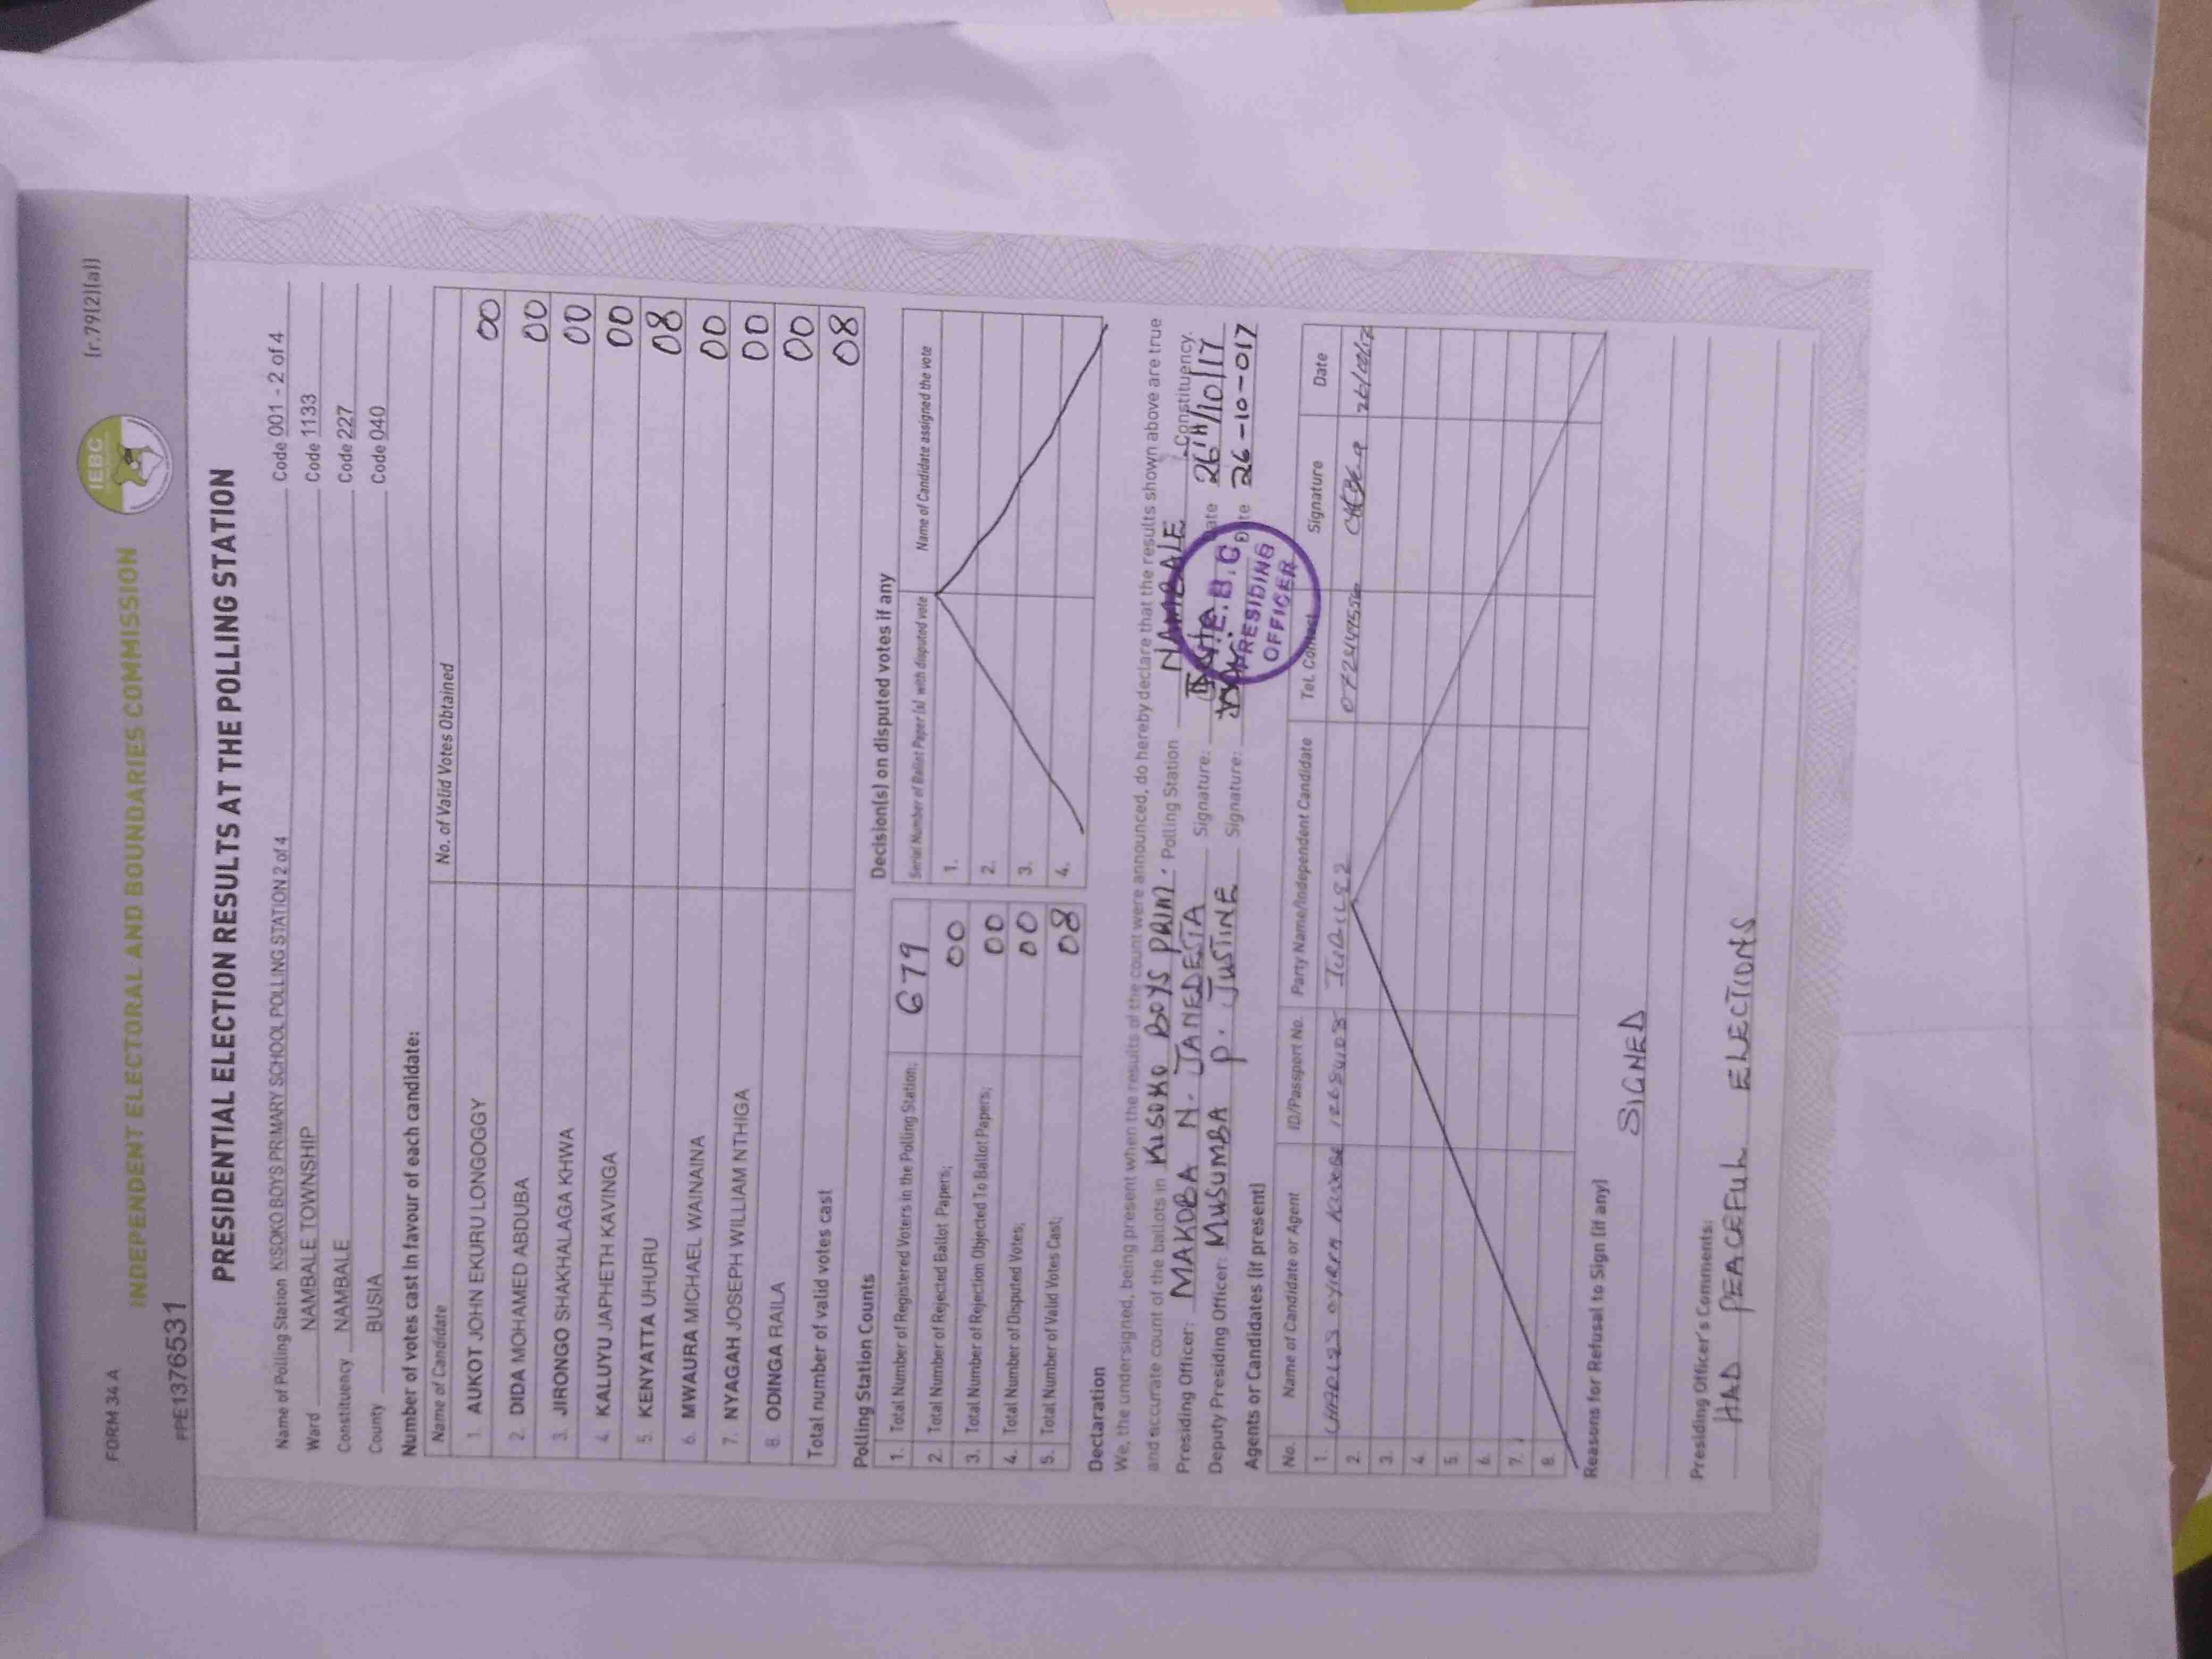 FORM 34 A
(r.79(2)(a))
INDEPENDENT ELECTORAL AND BOUNDARIES COMMISSION
IEBC
PPE1376531
PRESIDENTIAL ELECTION RESULTS AT THE POLLING STATION
Name of Polling Station KISOKO BOYS PRIMARY SCHOOL POLLING STATION 2 of 4 Code 001 - 2 of 4
Ward NAMBALE TOWNSHIP Code 1133
Constituency NAMBALE Code 227
County BUSIA Code 040
Number of votes cast in favour of each candidate:
Name of Candidate No. of Valid Votes Obtained
1. AUKOT JOHN EKURU LONGOGGY 00
2. DIDA MOHAMED ABDUBA 00
3. JIRONGO SHAKHALAGA KHWA 00
4. KALUYU JAPHETH KAVINGA 00
5. KENYATTA UHURU 08
6. MWAURA MICHAEL WAINAINA 00
7. NYAGAH JOSEPH WILLIAM NTHIGA 00
8. ODINGA RAILA 00
Total number of valid votes cast 08
Polling Station Counts
1. Total Number of Registered Voters in the Polling Station; 679
2. Total Number of Rejected Ballot Papers; 00
3. Total Number of Rejection Objected To Ballot Papers; 00
4. Total Number of Disputed Votes; 00
5. Total Number of Valid Votes Cast; 08
Decision(s) on disputed votes if any
Serial Number of Ballot Paper (s) with disputed vote Name of Candidate assigned the vote
1.
2.
3.
4.
Declaration
We, the undersigned, being present when the results of the count were announced, do hereby declare that the results shown above are true
and accurate count of the ballots in KISOKO BOYS PRIM. Polling Station NAMBALE Constituency.
Presiding Officer: MAKOBA N. JANEDESTA Signature: Date 26TH/10/17
Deputy Presiding Officer: MUSUMBA P. JUSTINE Signature: Date 26-10-017
I.E.B.C
PRESIDING
OFFICER
Agents or Candidates (if present)
No. Name of Candidate or Agent ID/Passport No. Party Name/Independent Candidate Tel. Contact Signature Date
1. CHARLES
2.
3.
4.
5.
6.
7.
8.
Reasons for Refusal to Sign (if any)
SIGNED
Presiding Officer's Comments:
HAD PEACEFUL ELECTIONS